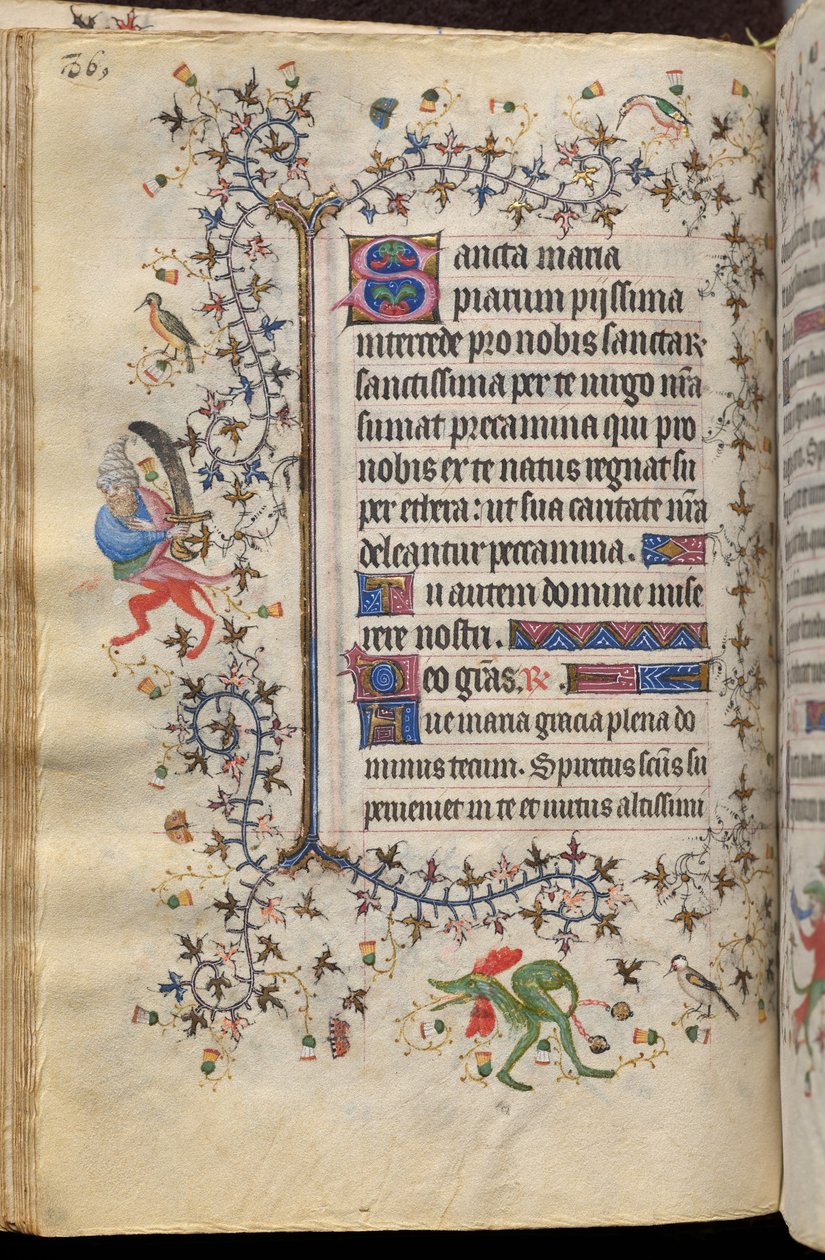 Sancta maria
piarum pijssima
intercede pro nobis sanctarꝝ
sanctissima per te uirgo nr̄a
sumat precamina qui pro
nobis ex te natus regnat su
per ethera: ut sua caritate nr̄a
deleantur peccamina.
Tu autem domine mise
rere nostri.
Deo grās. R̄
Aue maria gracia plena do
minus tecum. Spiritus scūs su
perueniet in te et uirtus altissimi